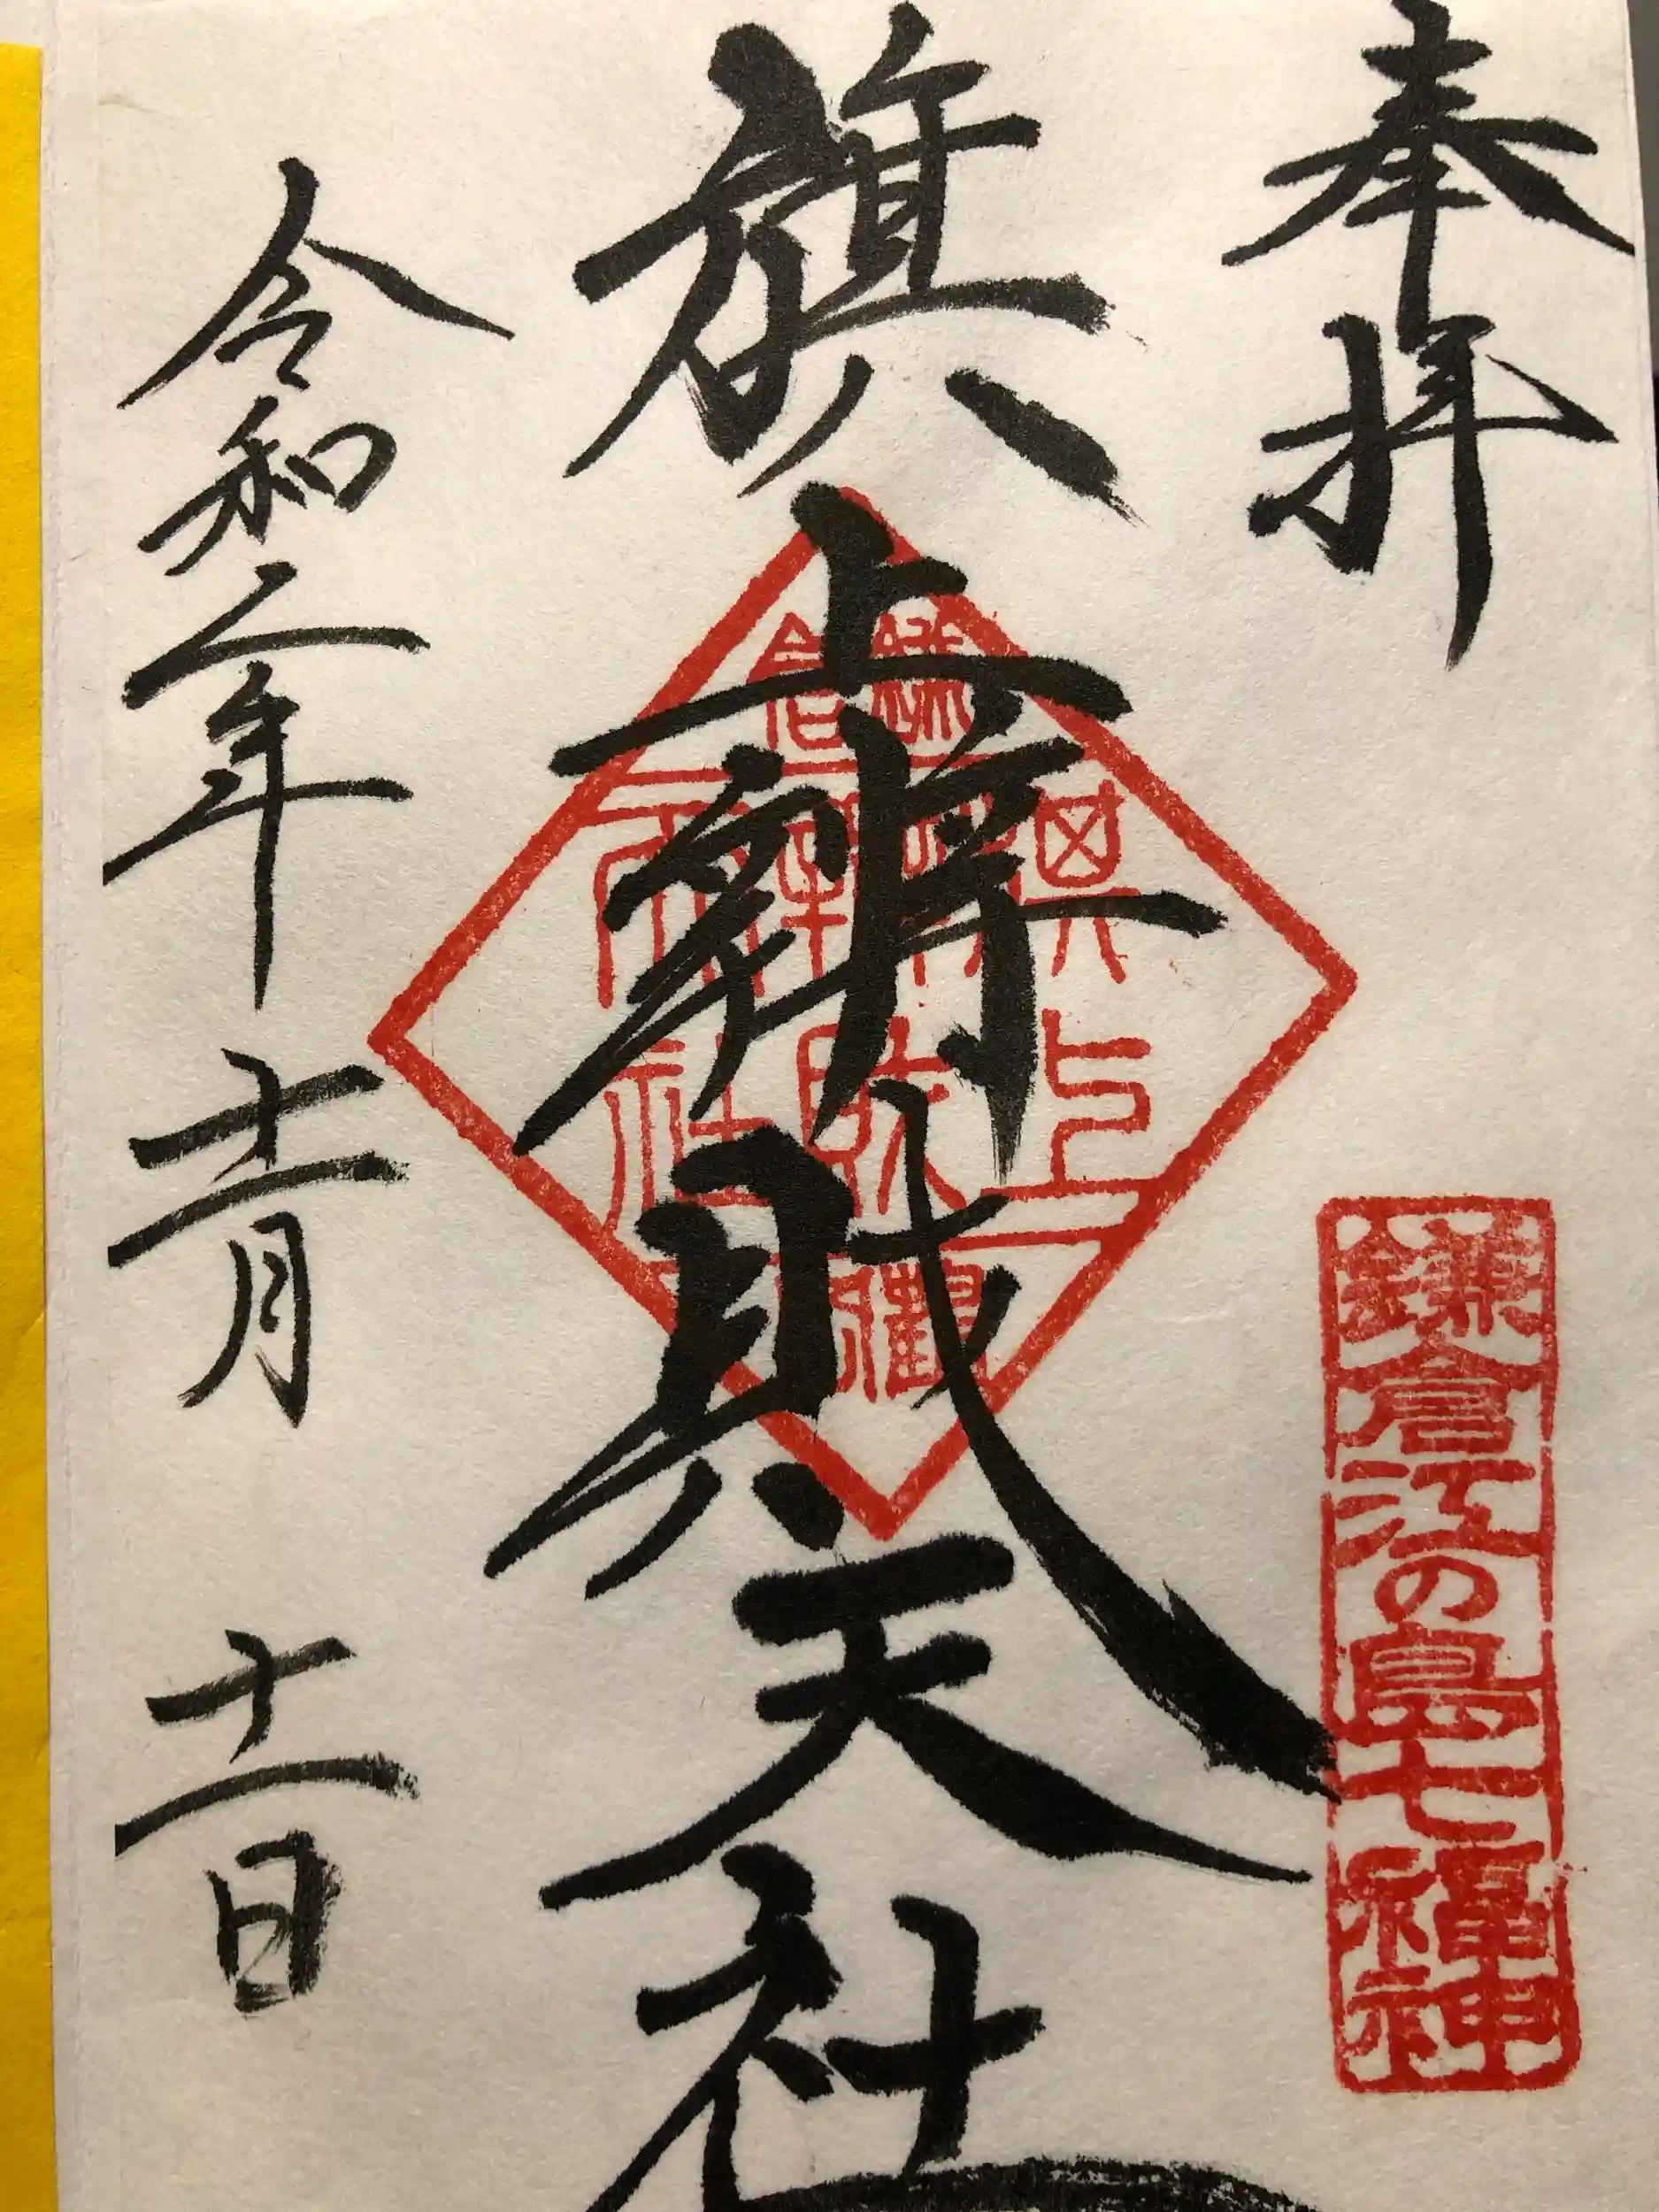 奉拝
鎌倉江の島七福神
旗上辨財天社
令和二年十一月十一日